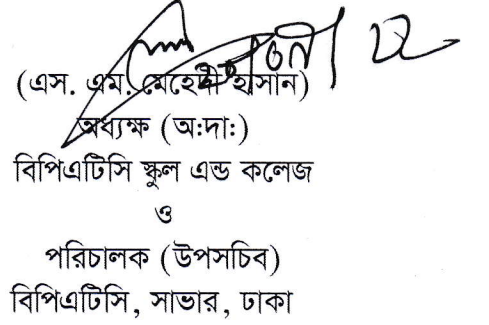 (এস. এম. মেহেদী হাসান)
অধ্যক্ষ (অ:দা:)
বিপিএটিসি স্কুল এন্ড কলেজ
ও
পরিচালক (উপসচিব)
বিপিএটিসি, সাভার, ঢাকা